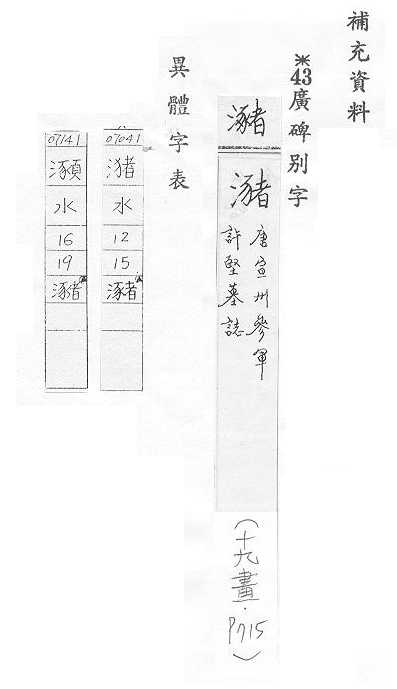 補充資料
※43廣碑別字
瀦
瀦
唐宣州參軍
許堅墓誌
(十九畫·P715)
異體字表
07041
潴
水
12
15
瀦
07141
水
16
19
瀦